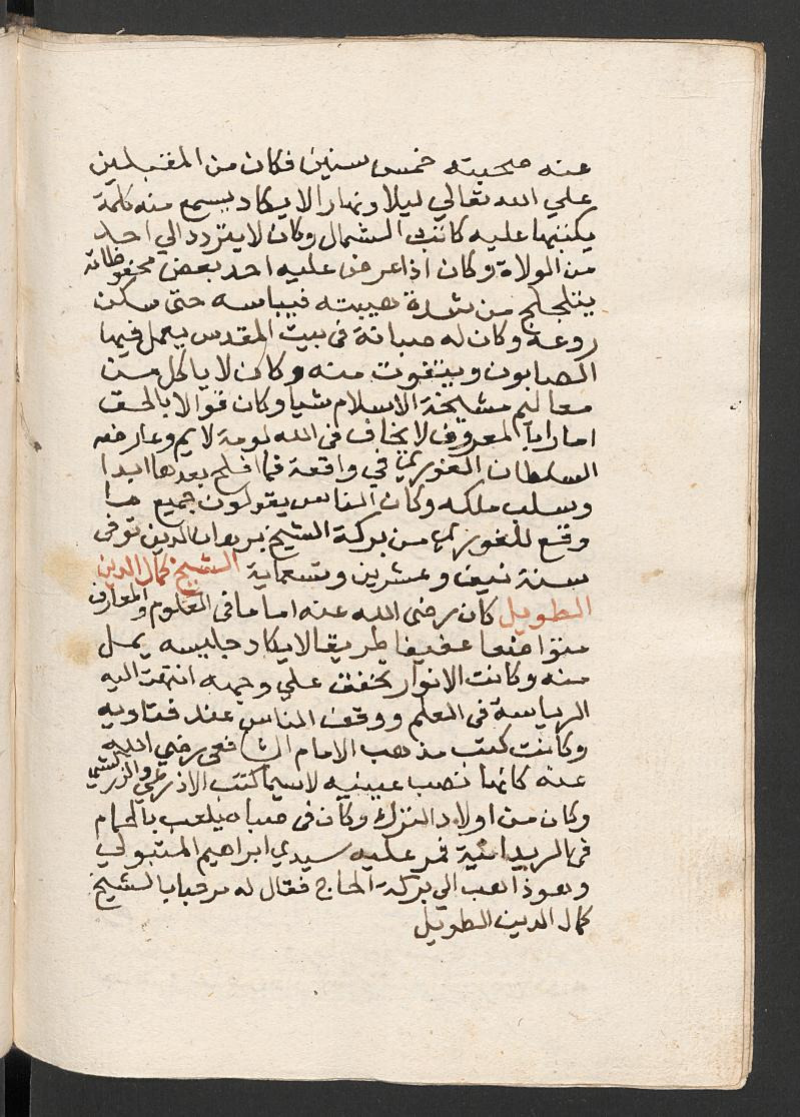 عنه صحبته خمس سنين فكان من المقبلين
علي الله تعالي ليلا ونهارا لا يكاد يسمع منه كلمة
يكتبها عليه كاتب الشمال وكان لا يتردد الي احد
من الولاة وكان اذا عرض عليه احد بعض محفوظاته
يتلجلج من شدة هيبته فيباسه حتي سكن
روعه وكان له صبانة في بيت المقدس يعمل فيها
الصابون ويتقوت منه وكان لا ياكل من
معاليم مشيخة الاسلام شيا وكان قوالا بالحق
امارا بالمعروف لا يخاف في الله لومة لايم وعارضه
السلطان الغوري في واقعة فما افلح بعدها ابدا
وسلب ملكه وكان الناس يقولون جميع ما
وقع للغوري من بركة الشيخ برهان الدين توفي
سنة نيف وعشرين وتسعماية الشيخ كمال الدين
الطويل كان رضي الله عنه اماما في العلوم والمعارف
متواضعا عفيفا ظريفا لا يكاد جليسه يمل
منه وكانت الانوار تخفق علي وجهه انتهت اليه
الرياسة في العلم ووقف الناس عند فتاويه
وكانت كتب مذهب الامام الشافعي رضي الله
عنه كانها نصب عينيه لا سيما كتب الاذرعي والزركشي
وكان من اولاد الترك وكان في صباه يلعب بالحمام
في الريدانية فمر عليه سيدي ابراهيم المتبولي
وهو ذاهب الي بركة الحاج فقال له مرحبا بالشيخ
كمال الدين الطويل